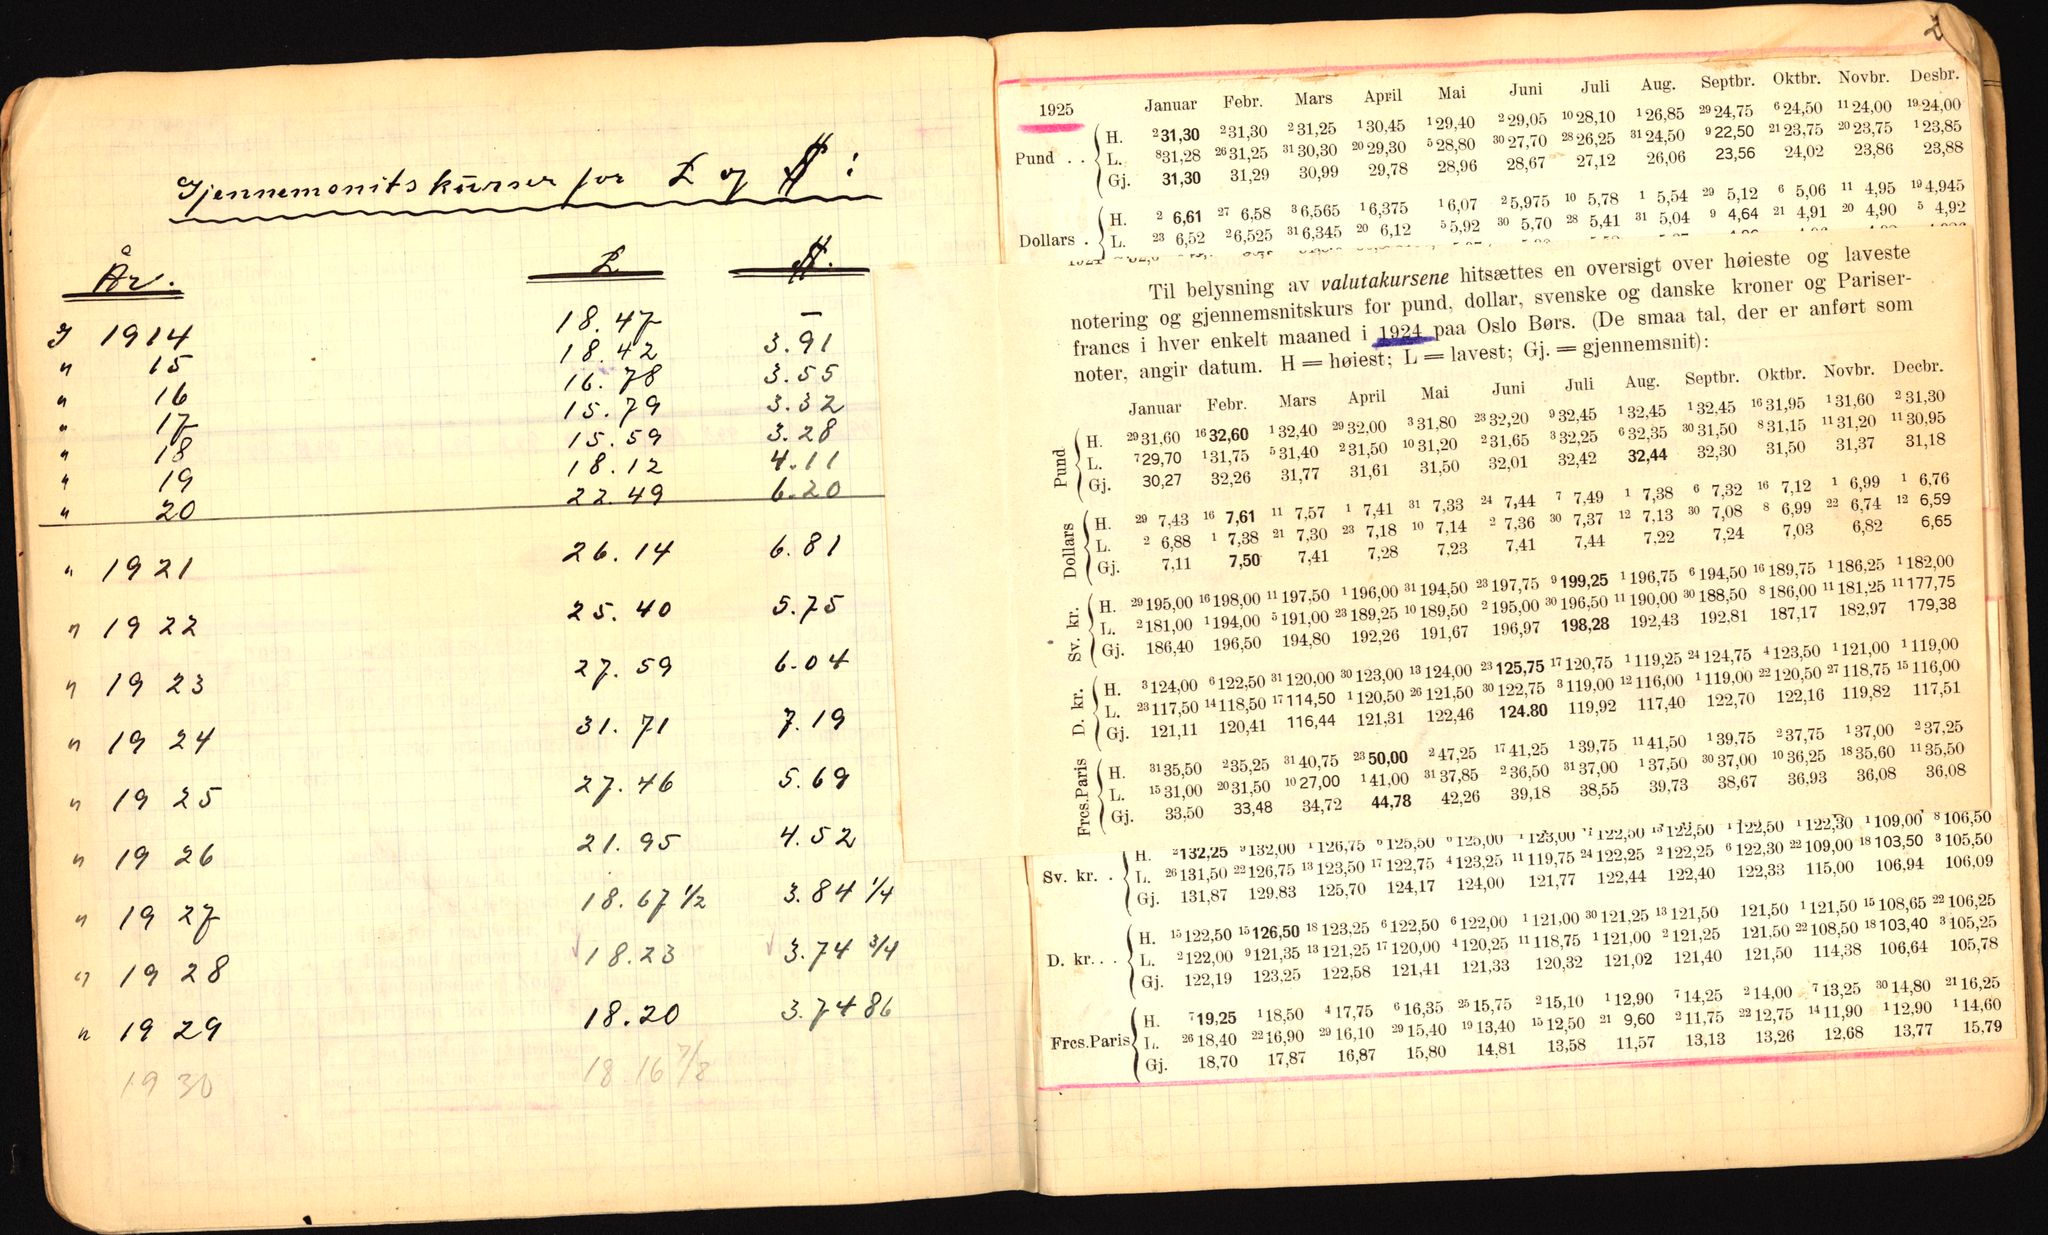 Gjennemsnitskurser for £ og $ :
År. £ $.
I 1914 18.47 —
" 15 18.42 3.91
" 16 16.78 3.55
" 17 15.79 3.32
" 18 15.59 3.28
" 19 18.12 4.11
" 20 22.49 6.20
" 1921 26.14 6.81
" 1922 25.40 5.75
" 1923 27.59 6.04
" 1924 31.71 7.19
" 1925 27.46 5.69
" 1926 21.95 4.52
" 1927 18.67 1/2 3.84 1/4
" 1928 18.23 3.74 3/4
" 1929 18.20 3.7486
1930 18 16 7/8
2
1925 Januar Febr. Mars April Mai Juni Juli Aug. Septbr. Oktbr. Novbr. Desbr.
Pund . . H. ²31,30 ²31,30 ²31,25 ¹30,45 ¹29,40 ²29,05 ¹⁰28,10 ¹26,85 ²⁹24,75 ⁶24,50 ¹¹24,00 ¹⁹24,00
L. ⁸31,28 ²⁶31,25 ³¹30,30 ²⁰29,30 ⁵28,80 ³⁰27,70 ²⁸26,25 ³¹24,50 ⁹22,50 ²¹23,75 ²⁰23,75 ¹23,85
Gj. 31,30 31,29 30,99 29,78 28,96 28,67 27,12 26,06 23,56 24,02 23,86 23,88
Dollars . H. ²6,61 ²⁷6,58 ³6,565 ¹6,375 ¹6,07 ²5,975 ¹⁰5,78 ¹5,54 ²⁹5,12 ⁶5,06 ¹¹4,95 ¹⁹4,945
L. ²³6,52 ²6,525 ³¹6,345 ²⁰6,12 ⁵5,92 ³⁰5,70 ²⁸5,41 ³¹5,04 ⁹4,64 ²¹4,91 ²⁰4,90 ⁵4,92
Til belysning av valutakursene hitsættes en oversigt over høieste og laveste
notering og gjennemsnitskurs for pund, dollar, svenske og danske kroner og Pariser-
francs i hver enkelt maaned i 1924 paa Oslo Børs. (De smaa tal, der er anført som
noter, angir datum. H = høiest; L = lavest; Gj. = gjennemsnit):
Januar Febr. Mars April Mai Juni Juli Aug. Septbr. Oktbr. Novbr. Decbr.
Pund H. ²⁹31,60 ¹⁶32,60 ¹32,40 ²⁹32,00 ³31,80 ²³32,20 ⁹32,45 ¹32,45 ¹32,45 ¹⁶31,95 ¹31,60 ²31,30
L. ⁷29,70 ¹31,75 ⁵31,40 ²31,50 ¹⁰31,20 ²31,65 ³32,25 ⁶32,35 ³⁰31,50 ⁸31,15 ¹¹31,20 ¹¹30,95
Gj. 30,27 32,26 31,77 31,61 31,50 32,01 32,42 32,44 32,30 31,50 31,37 31,18
Dollars H. ²⁹7,43 ¹⁶7,61 ¹¹7,57 ¹7,41 ³¹7,33 ²⁴7,44 ⁷7,49 ¹7,38 ⁶7,32 ¹⁶7,12 ¹6,99 ¹6,76
L. ²6,88 ¹7,38 ²¹7,30 ²³7,18 ¹⁰7,14 ²7,36 ³⁰7,37 ¹²7,13 ³⁰7,08 ⁸6,99 ²²6,74 ¹²6,59
Gj. 7,11 7,50 7,41 7,28 7,23 7,41 7,44 7,22 7,24 7,03 6,82 6,65
Sv. kr. H. ²⁹195,00 ¹⁶198,00 ¹¹197,50 ¹196,00 ³¹194,50 ²³197,75 ⁹199,25 ¹196,75 ⁶194,50 ¹⁶189,75 ¹186,25 ¹182,00
L. ²181,00 ¹194,00 ⁵191,00 ²³189,25 ¹⁰189,50 ²195,00 ³⁰196,50 ¹¹190,00 ³⁰188,50 ⁸186,00 ¹¹181,25 ¹¹177,75
Gj. 186,40 196,50 194,80 192,26 191,67 196,97 198,28 192,43 192,81 187,17 182,97 179,38
D. kr. H. ³124,00 ⁶122,50 ³¹120,00 ³⁰123,00 ¹³124,00 ²³125,75 ¹⁷120,75 ¹119,25 ²⁴124,75 ⁴123,50 ¹121,00 ¹119,00
L. ²³117,50 ¹⁴118,50 ¹⁷114,50 ¹120,50 ²⁶121,50 ³⁰122,75 ³119,00 ¹²116,00 ¹119,00 ²²120,50 ²⁷118,75 ¹⁵116,00
Gj. 121,11 120,41 116,44 121,31 122,46 124.80 119,92 117,40 122,70 122,16 119,82 117,51
Frcs.Paris H. ³¹35,50 ²35,25 ³¹40,75 ²³50,00 ²47,25 ¹⁷41,25 ¹39,75 ¹¹41,50 ¹39,75 ²37,75 ¹37,00 ²37,25
L. ¹⁵31,00 ²⁰31,50 ¹⁰27,00 ¹41,00 ³¹37,85 ²36,50 ³¹37,00 ¹37,50 ³⁰37,00 ¹⁰36,25 ¹⁸35,60 ¹¹35,50
Gj. 33,50 33,48 34,72 44,78 42,26 39,18 38,55 39,73 38,67 36,93 36,08 36,08
Sv. kr. . H. ²132,25 ³132,00 ¹126,75 ⁶125,50 ⁶125,00 ¹123,00 122,50 ¹³122,50 ¹122,50 ¹122,30 ¹109,00 ⁸106,50
L. ²⁶131,50 ²²126,75 ¹³123,50 ¹⁷122,75 ⁴123,25 ¹¹119,75 ²⁴122,25 ²122,25 ⁶122,30 ²²109,00 ¹⁸103,50 ³105,50
Gj. 131,87 129,83 125,70 124,17 124,00 121,77 122,44 122,40 122,33 115,00 106,94 106,09
D. kr. . . H. ¹⁵122,50 ¹⁵126,50 ¹⁸123,25 ⁶122,50 ⁶122,00 ¹121,00 ³⁰121,25 ¹³121,50 121,50 ¹121,50 ¹⁵108,65 ²²106,25
L. ²122,00 ⁹121,35 ¹³121,25 ¹⁷120,00 ⁴120,25 ¹¹118,75 ¹121,00 ²121,25 121,50 ²²108,50 ¹⁸103,40 ³105,25
Gj. 122,19 123,25 122,58 121,41 121,33 120,32 121,02 121,40 121,50 114,38 106,64 105,78
Frcs.Paris H. ⁷19,25 ¹18,50 ⁴17,75 ⁶16,35 ²⁵15,75 ²15,10 ¹12,90 ⁷14,25 ²14,00 ⁷13,25 ³⁰14,80 ²¹16,25
L. ²⁶18,40 ²²16,90 ²⁹16,10 ²⁹15,40 ¹⁹13,40 ¹⁵12,50 ²¹9,60 ²11,75 ²²12,75 ¹⁴11,90 ¹12,90 ¹14,60
Gj. 18,70 17,87 16,87 15,80 14,81 13,58 11,57 13,13 13,26 12,68 13,77 15,79